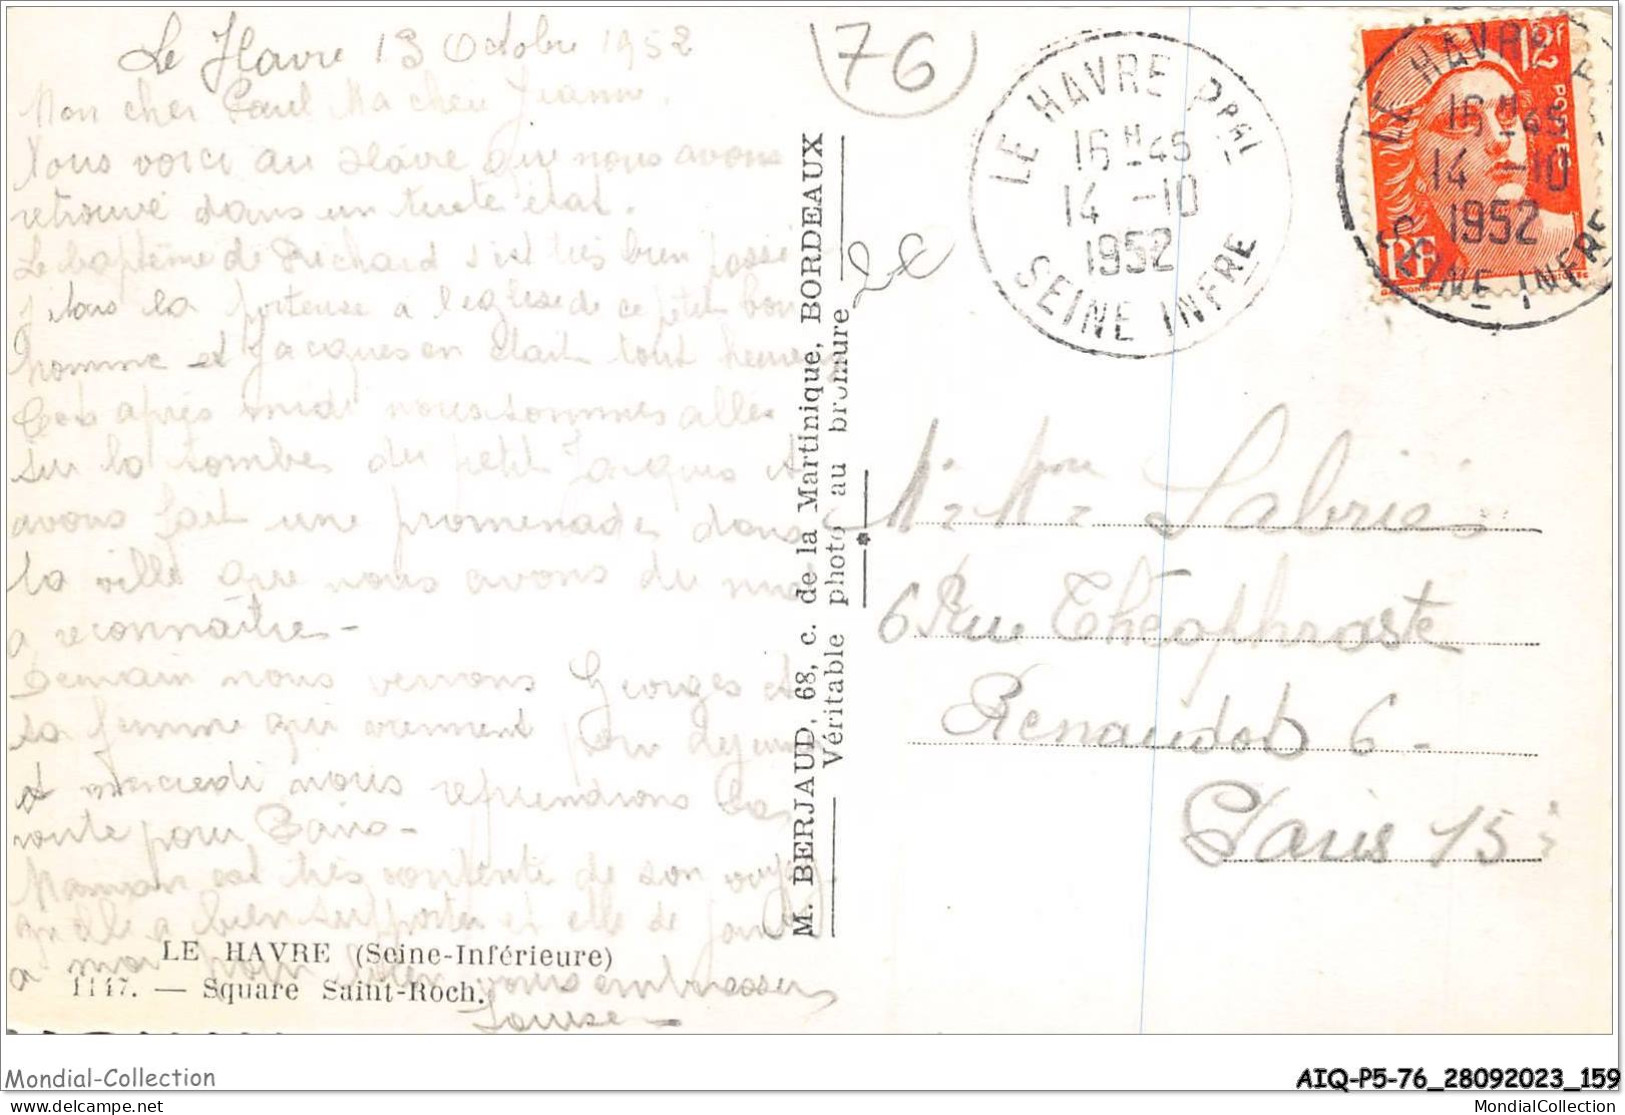 Le Havre 13 Octobre 1952
Mon cher Paul Ma chère Jeanne,
Nous voici au Havre que nous avons
retrouvé dans un triste état.
Le baptême de Richard s'est très bien passé
j'étais la porteuse à l'église de ce petit bon
homme et Jacques en était tout heureux
Cet après midi nous sommes allés
sur la tombe du petit Jacques et
avons fait une promenade dans
la ville que nous avons du mal
a reconnaître -
Demain nous verrons Georges et
sa femme qui viennent pour déjeuner
et mercredi nous reprendrons la
route pour Paris -
Maman est très contente de son voyage
qu'elle a bien supporté et elle se joint
a moi pour bien vous embrasser
Louise
LE HAVRE (Seine-Inférieure)
1147. — Square Saint-Roch.
M. BERJAUD, 68, c. de la Martinique, BORDEAUX
Véritable photo au bromure
76
LE HAVRE Ppal
16H45
14 -10
1952
SEINE INFRE
12F
POSTES
RF
LE HAVRE
16H45
14 -10
1952
SEINE INFRE
M. Mme Labrie
6 Rue Théophraste
Renaudot 6 -
Paris 15
Mondial-Collection
AIQ-P5-76_28092023_159
www.delcampe.net
MondialCollection